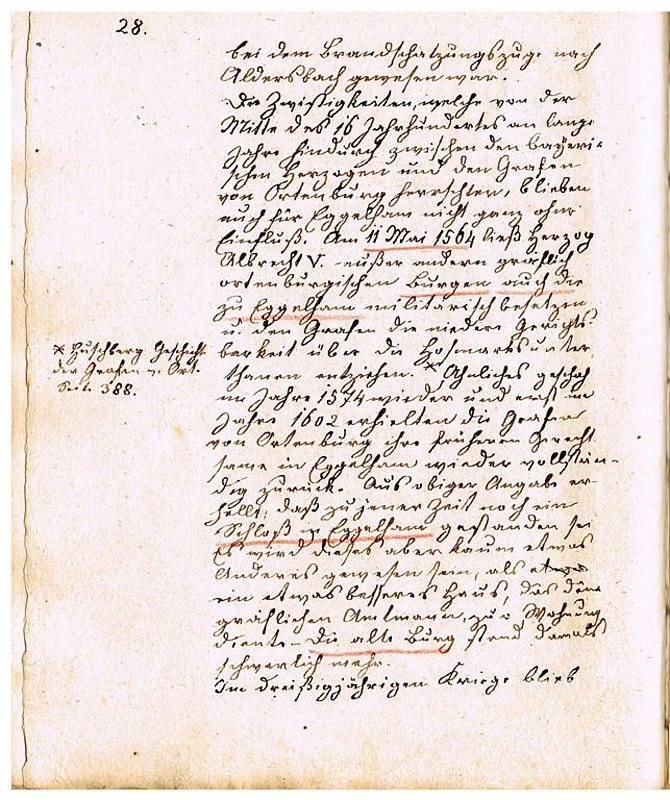 28.
bei dem Brandschatzungszuge nach
Aldersbach gewesen war.
Die Zwistigkeiten, welche von der
Mitte des 16 Jahrhundertes an lange
Jahre hindurch zwischen den bayeri-
schen Herzogen und den Grafen
von Ortenburg herrschten, blieben
auch für Eggelham nicht ganz ohne
Einfluß. Am 11 Mai 1564 ließ Herzog
Albrecht V. außer andern gräflich
ortenburgischen Burgen auch die
zu Eggelham militärisch besetzen
u. den Grafen die niedere Gerichts-
barkeit über die Hofmarksunter-
thanen entziehen. * Ähnliches geschah
im Jahre 1574 wieder und erst im
Jahre 1602 erhielten die Grafen
von Ortenburg ihre früheren Gerecht
same in Eggelham wieder vollstän-
dig zurück. Aus obiger Angabe er-
hellt, daß zu jener Zeit noch ein
Schloß in Eggelham gestanden sei
Es wird dieses aber kaum etwas
Anderes gewesen sein, als etwa
ein etwas besseres Haus, das dem
gräflichen Amtmann, zur Wohnung
diente. Die alte Burg stand damals
schwerlich mehr.
Im dreißigjährigen Kriege blieb
* Huschberg Geschicht
der Grafen v. Ort.
Seite 388.